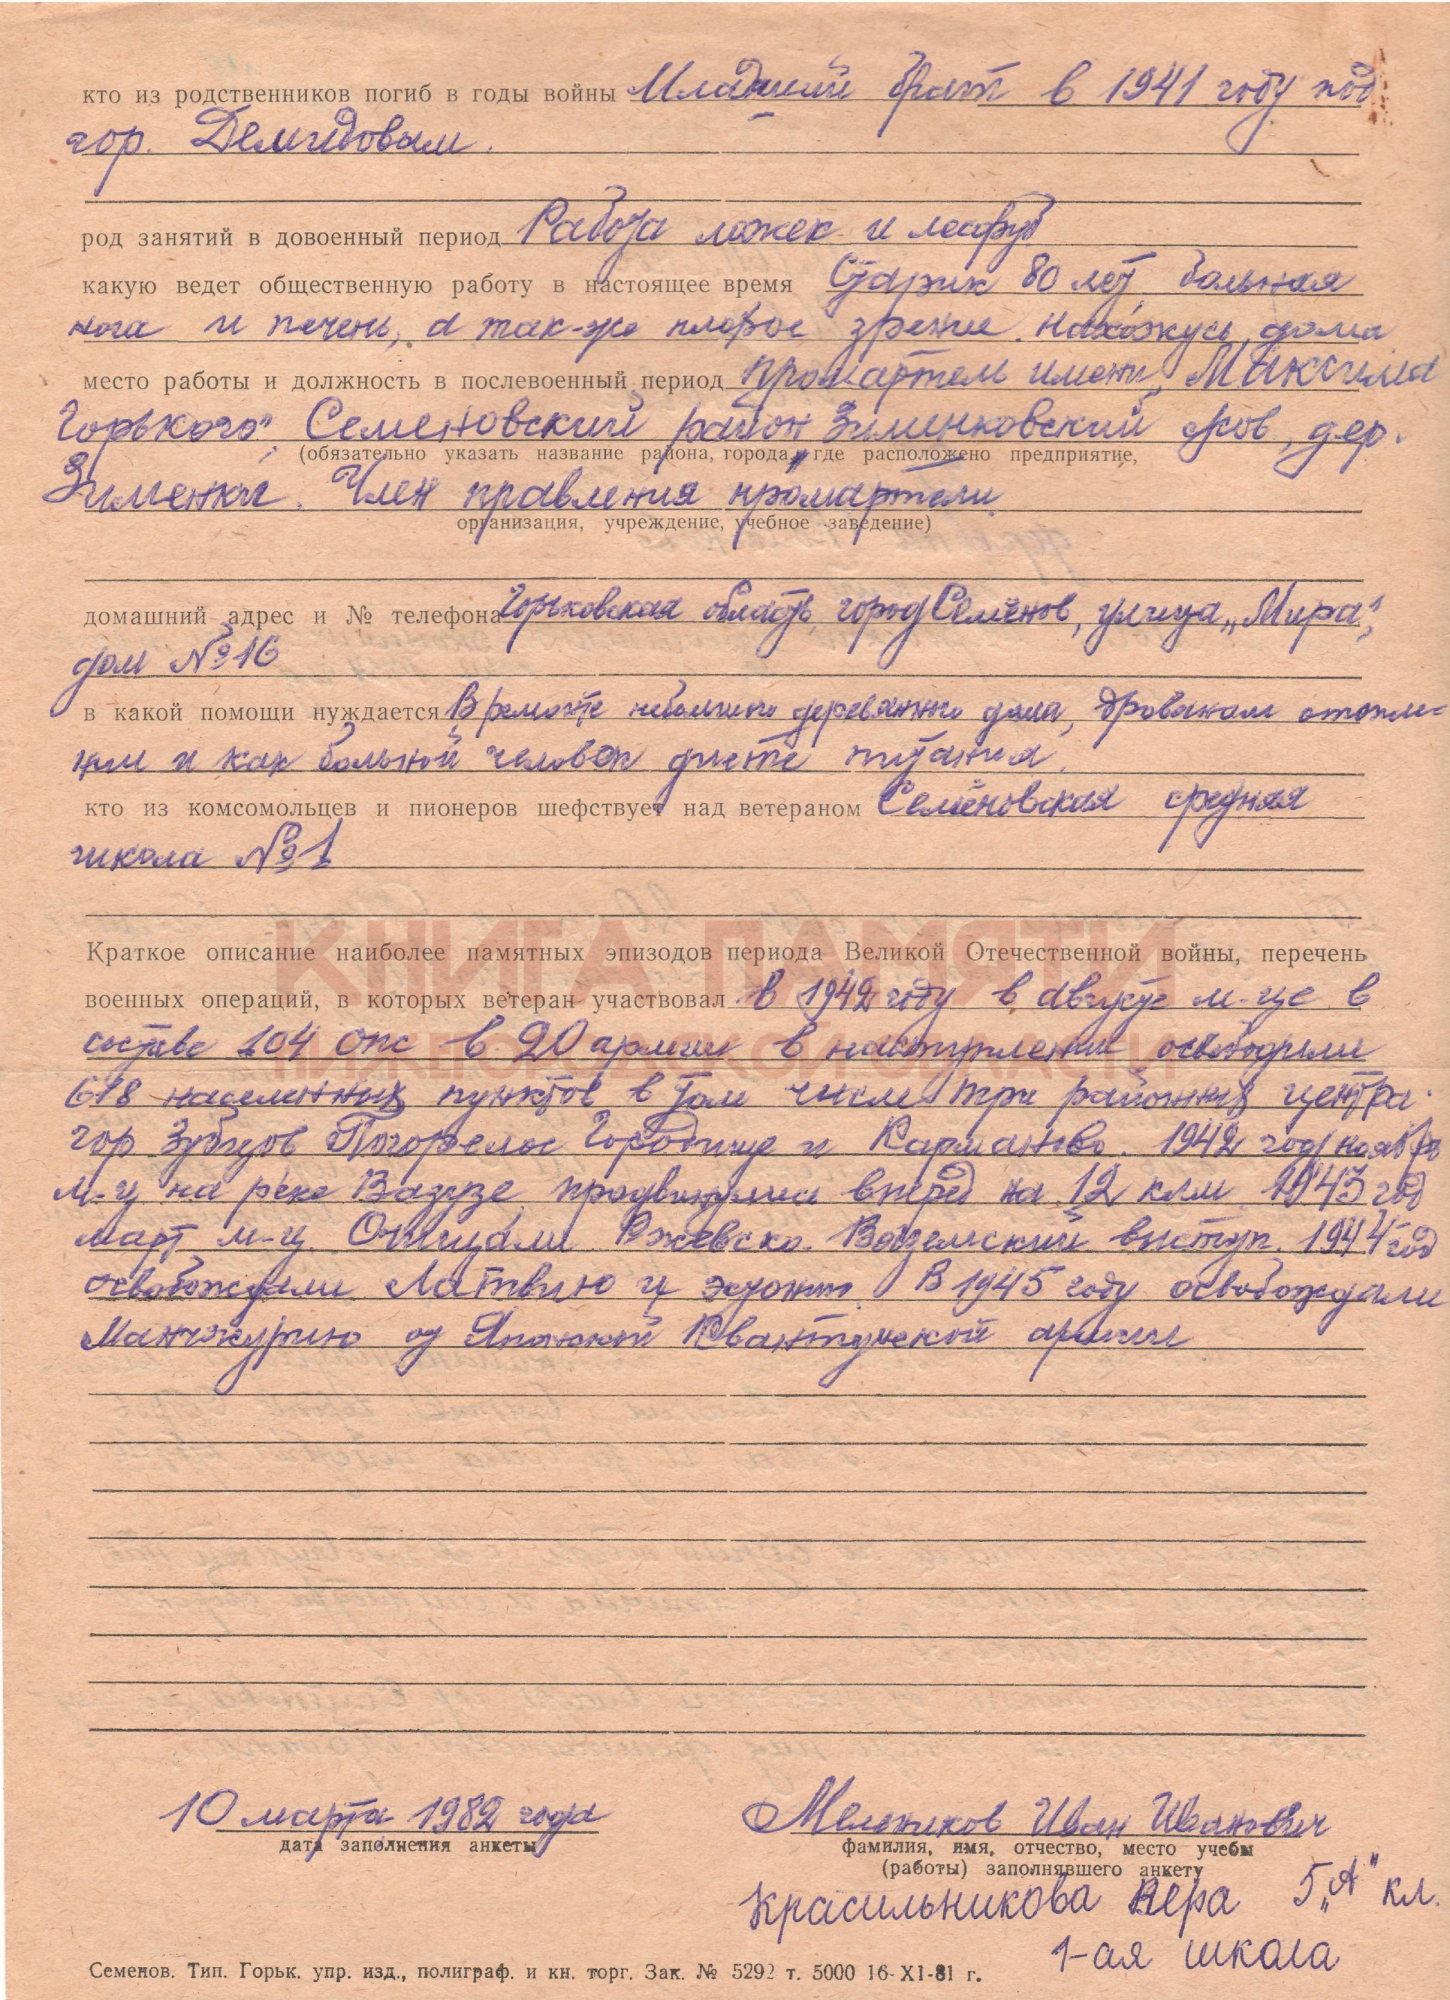 кто из родственников погиб в годы войны Младший брат в 1941 году под
гор. Демидовым.
род занятий в довоенный период Работа ложек и
какую ведет общественную работу в настоящее время Старик 80 лет, больная
нога и печень, а так-же плохое зрение. Нахожусь дома
место работы и должность в послевоенный период промартель имени „Максима
Горького", Семеновский район Зименковский с/сов, дер.
(обязательно указать название района, города, где расположено предприятие,
Зименки. Член правления промартели.
организация, учреждение, учебное заведение)
домашний адрес и № телефона Горьковская область, город Семёнов, улица „Мира",
дом № 16
в какой помощи нуждается В ремонте небольшого деревянно дома, дровяном отопле-
нии и как больной человек диете питания.
кто из комсомольцев и пионеров шефствует над ветераном Семёновская средняя
школа № 1
КНИГА ПАМЯТИ
Краткое описание наиболее памятных эпизодов периода Великой Отечественной войны, перечень
военных операций, в которых ветеран участвовал в 1942 году в августе м-це в
НИЖЕГОРОДСКОЙ ОБЛАСТИ
составе 104 опс в 20 армии в наступлении освободили
618 населенных пунктов в том числе три районных центра.
гор Зубцов Погорелое Городище и Карманово. 1942 год ноябрь
м-ц на реке Вазузе продвинулись вперёд на 12 клм 1943 год
март м-ц. Очищали Ржевско-Вяземский выступ. 1944 год
освобождали Латвию и эстонию. В 1945 году освобождали
Манчжурию от Японской Квантунской армии
10 марта 1982 года
дата заполнения анкеты
Мельников Иван Иванович
фамилия, имя, отчество, место учебы
(работы) заполнявшего анкету
Красильникова Вера 5 „А" кл.
1-ая школа
Семенов. Тип. Горьк. упр. изд., полиграф. и кн. торг. Зак. № 5292 т. 5000 16-XI-81 г.